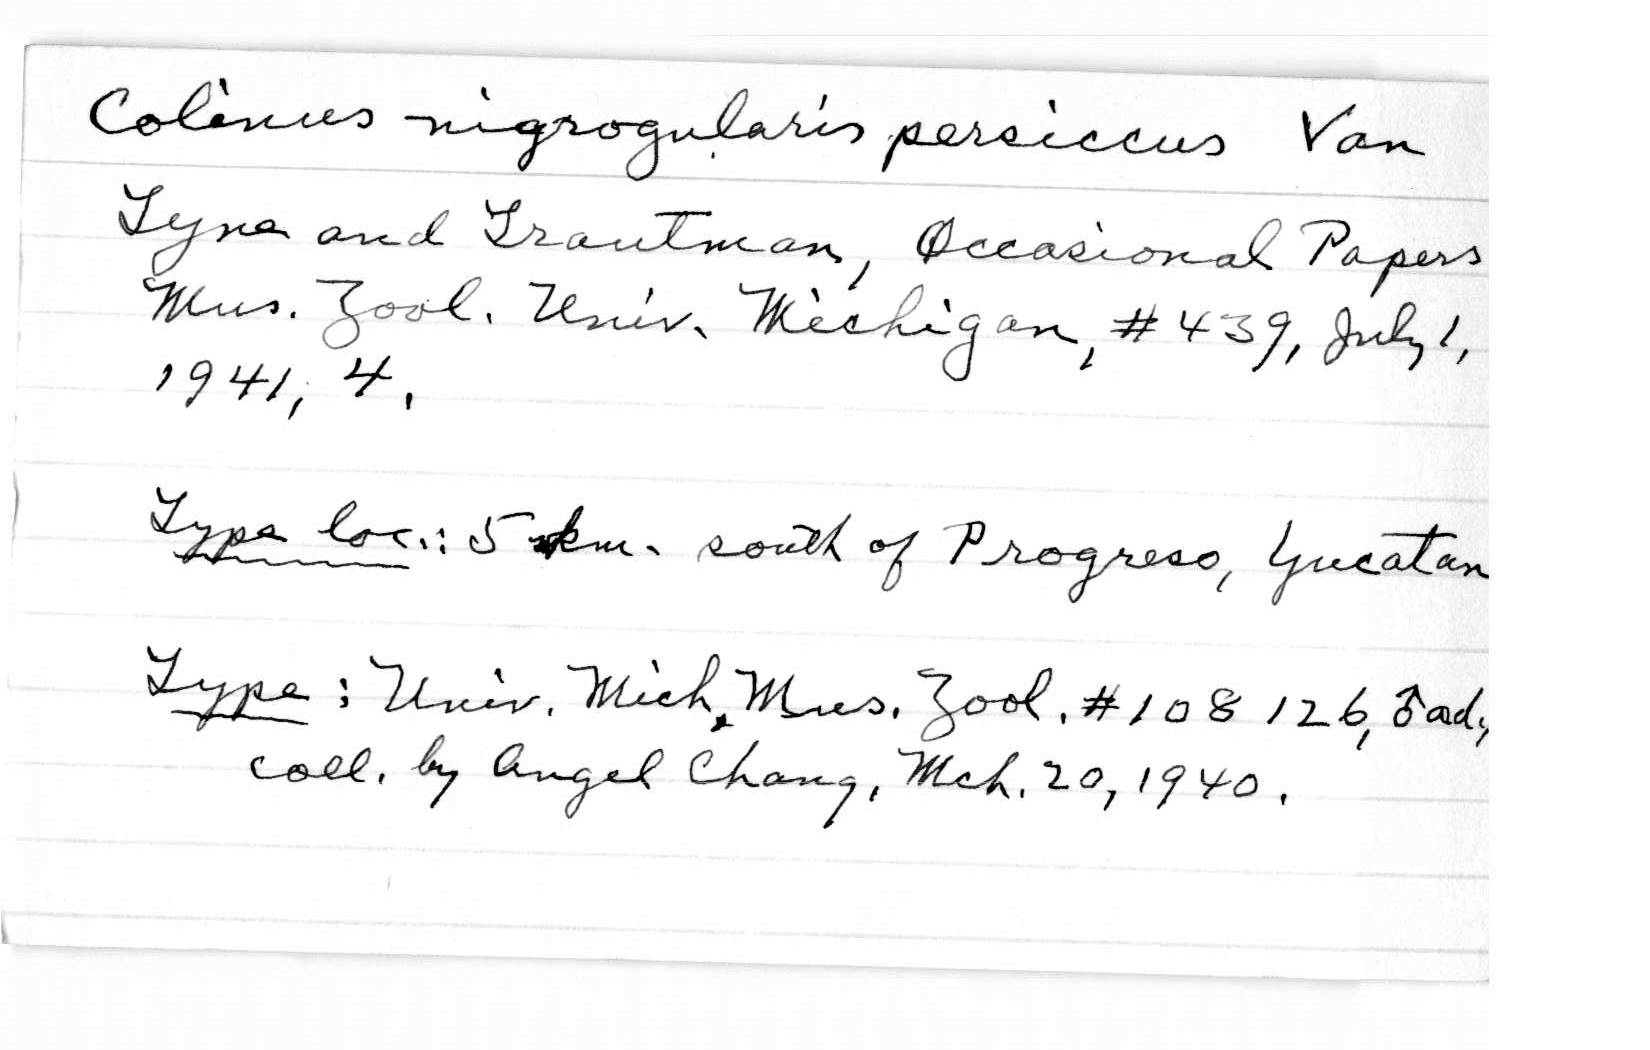 Colinus nigrogularis persiccus Van
Tyne and Trautman, Occasional Papers
Mus. Zool. Univ. Michigan, #439, July 1,
1941, 4.
Type loc.: 5 km. south of Progreso, Yucatan
Type: Univ. Mich. Mus. Zool. #108 126, ♂ ad.,
coll. by Angel Chang, Mch. 20, 1940.